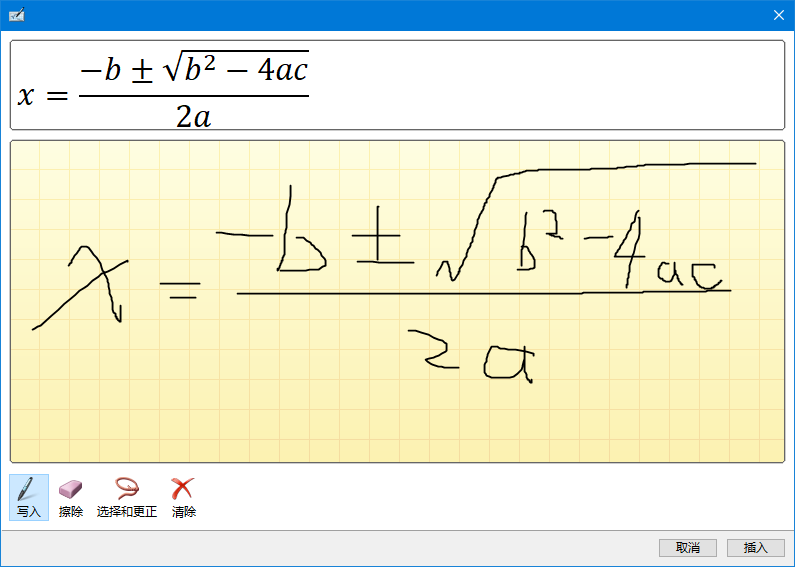 x = \frac{-b ± \sqrt{b^2 - 4ac}}{2a}
x = \frac{-b ± \sqrt{b^2 - 4ac}}{2a}
写入 擦除 选择和更正 清除
取消 插入